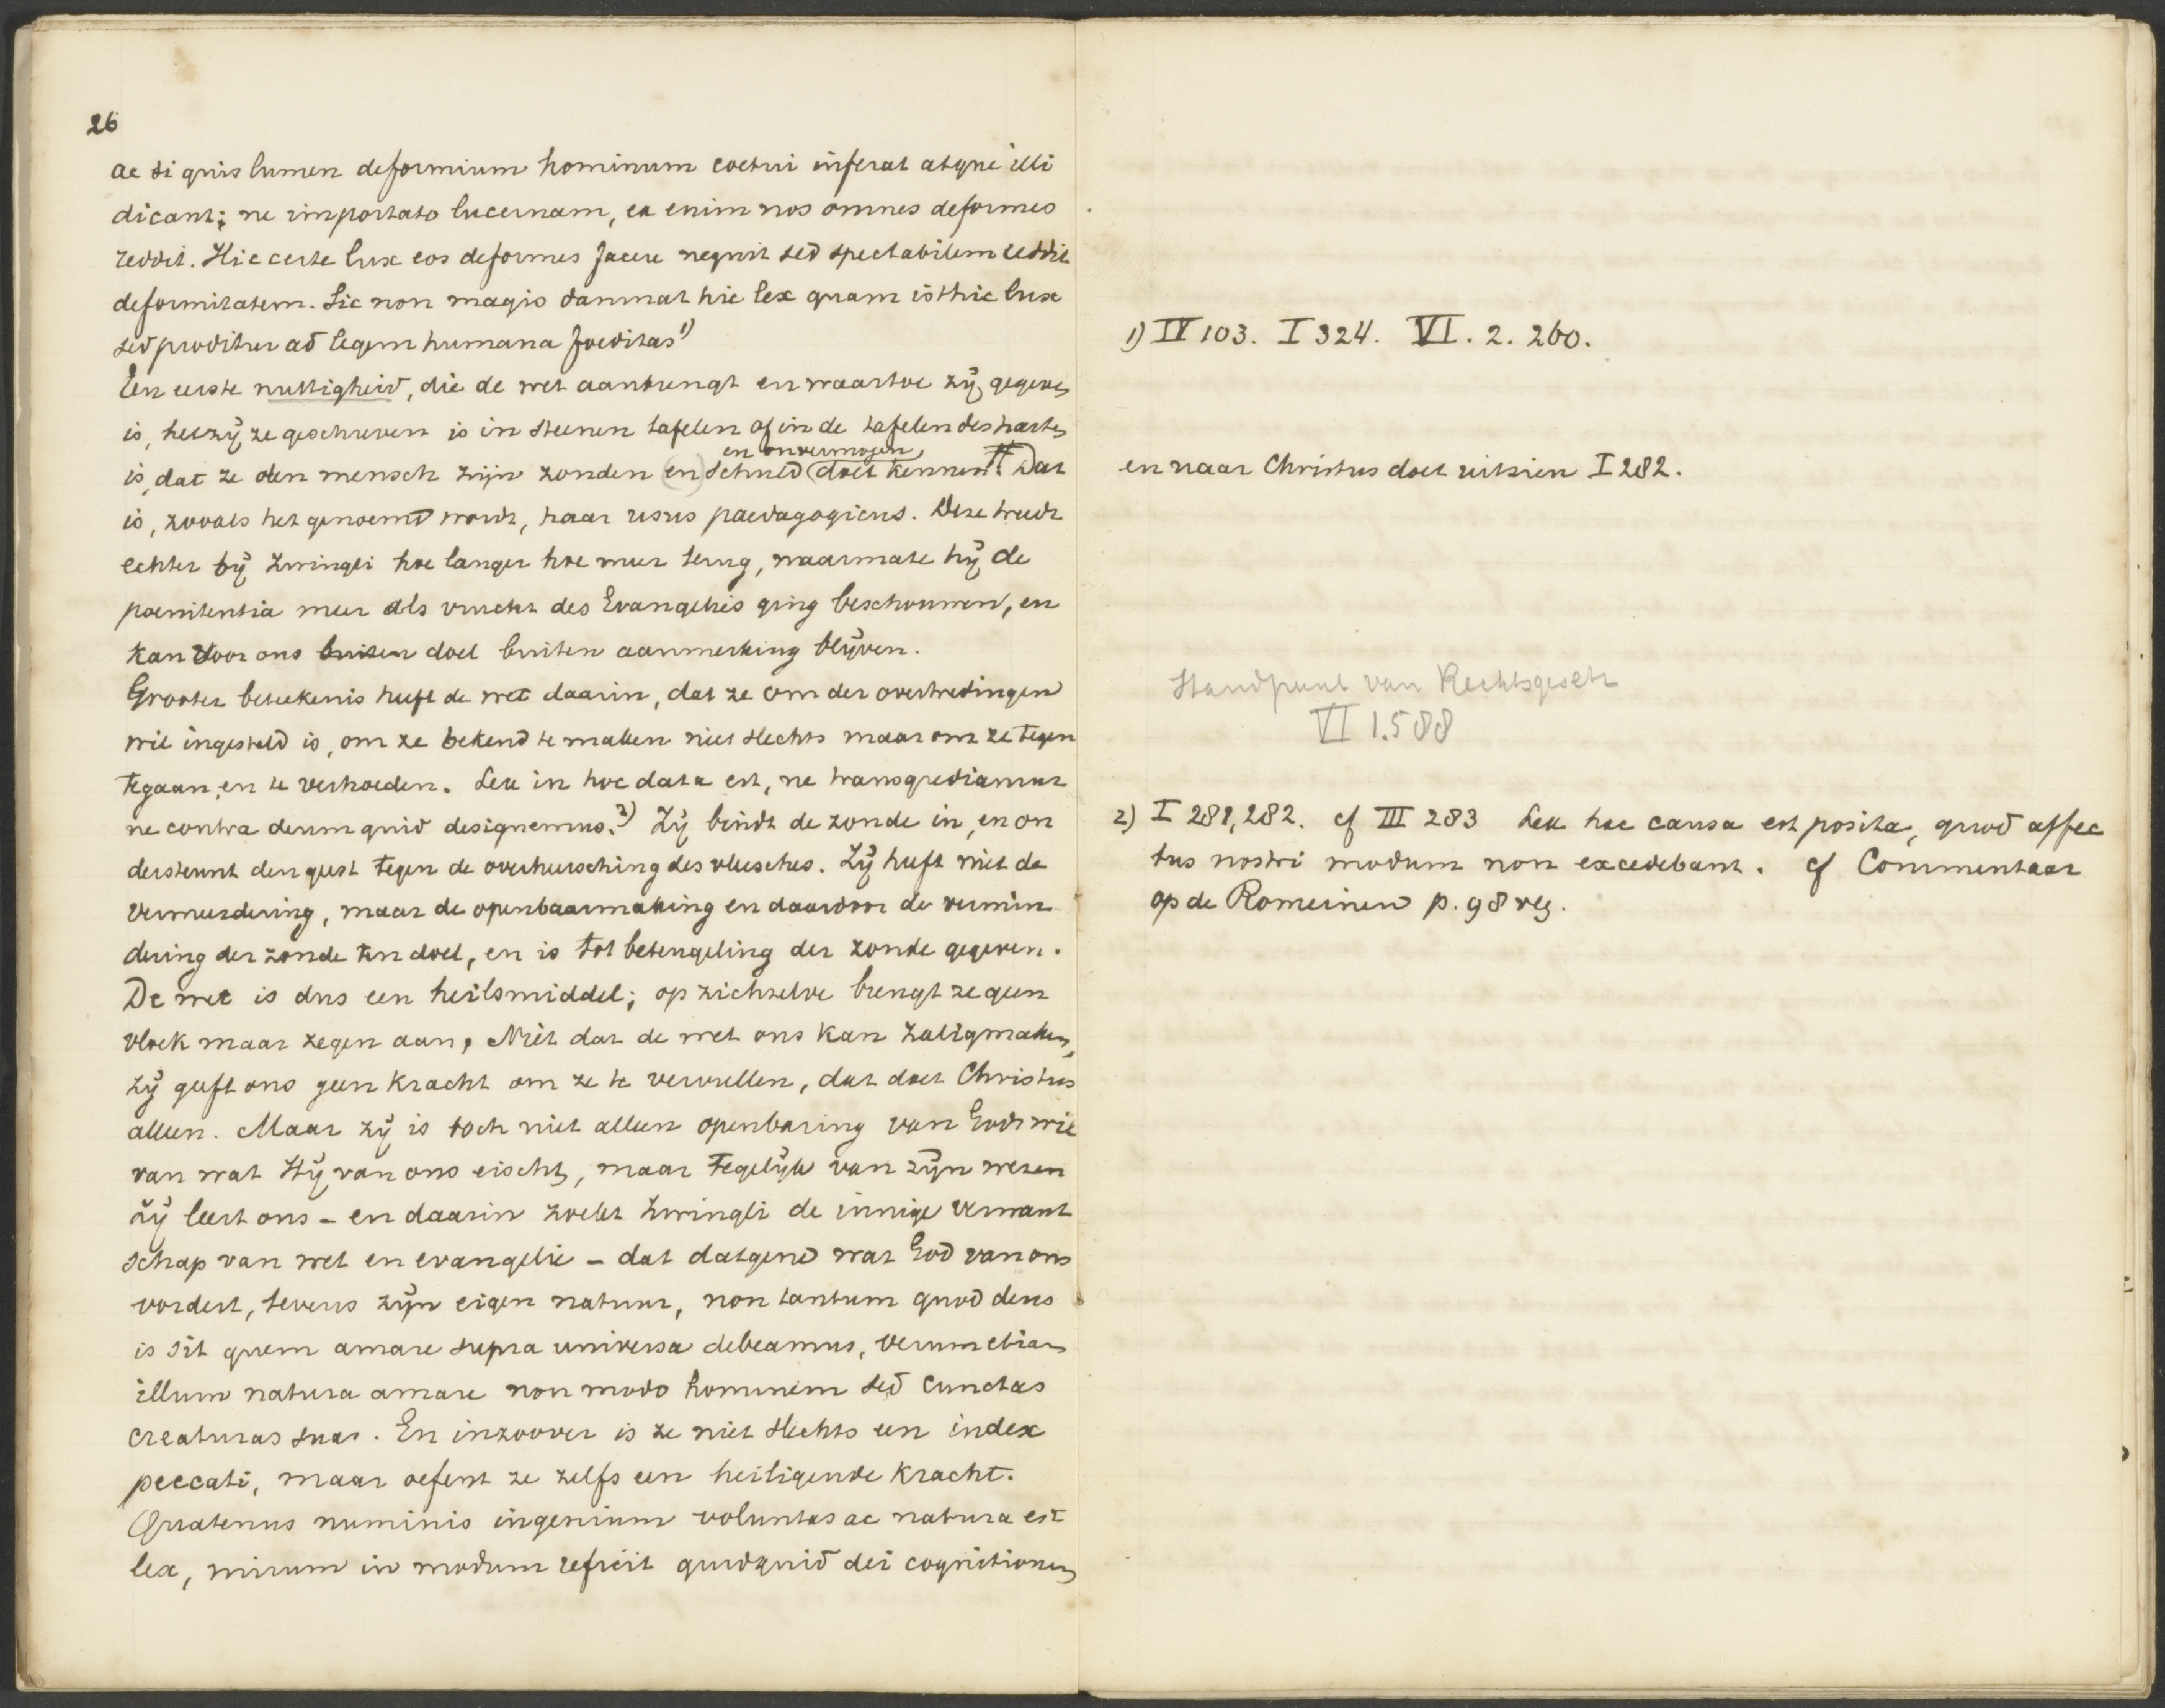 26
ac si quis lumen deformium hominum coetui inferat atque illi
dicant; ne importato lucernam, ea enim nos omnes deformes
reddit. Hic certe lux eos deformes facere nequit sed spectabilem reddit
deformitatem. Sic non magis damnat hic lex quam isthic lux
sed proditur ad legem humana foeditas 1)
Een eerste nuttigheid, die de wet aanbrengt en waartoe zij gegeven
is, hetzij ze geschreven is in steenen tafelen of in de tafelen des harten
en onvermogen
is, dat ze den mensch zijn zonden (en) schuld (doet kennen. Dat
is, zooals het genoemd wordt, haar usus paedagogicus. Deze treedt
echter bij Zwingli hoe langer hoe meer terug, naarmate hij de
poenitentia meer als vrucht des Evangelies ging beschouwen, en
kan voor ons buiten doel buiten aanmerking blijven.
Grooter beteekenis heeft de wet daarin, dat ze om der overtredingen
wil ingesteld is, om ze bekend te maken niet slechts maar om ze tegen
te gaan, en te verhoeden. Lex in hoc data est, ne transgrediamur
ne contra deum quid designemus. 2) Zij bindt de zonde in, en on
dersteunt den geest tegen de overheersching des vleesches. Zij heeft niet de
vermeerdering, maar de openbaarmaking en daardoor de vermin
dering der zonde ten doel, en is tot beteugeling der zonde gegeven.
De wet is dus een heilsmiddel; op zichzelve brengt ze geen
vloek maar zegen aan, Niet dat de wet ons kan zaligmaken,
zij geeft ons geen kracht om ze te vervullen, dat doet Christus
alleen. Maar zij is toch niet alleen openbaring van Gods wil
van wat Hij van ons eischt, maar tegelijk van zijn wezen
zij leert ons – en daarin zoekt Zwingli de innige verwant
schap van wet en evangelie – dat datgene wat God van ons
vordert, tevens zijn eigen natuur, non tantum quod deus
is sit quem amare supra universa debeamus, verum etiam
illum natura amare non modo hominem sed cunctas
creaturas suas. En inzoover is ze niet slechts een index
peccati, maar oefent ze zelfs een heiligende kracht.
Quatenus numinis ingenium voluntas ac natura est
lex, mirum in modum reficit quidquid dei cognitionem
1) IV 103. I 324. VI. 2. 260.
en naar Christus doet uitzien I 282.
Standpunt van Rechtsgesch
VI 1.588
2) I 281, 282. cf III 283 Lex hac causa est posita, quod affec
tus nostri modum non excedebant. cf Commentaar
op de Romeinen p. 98 vlg.